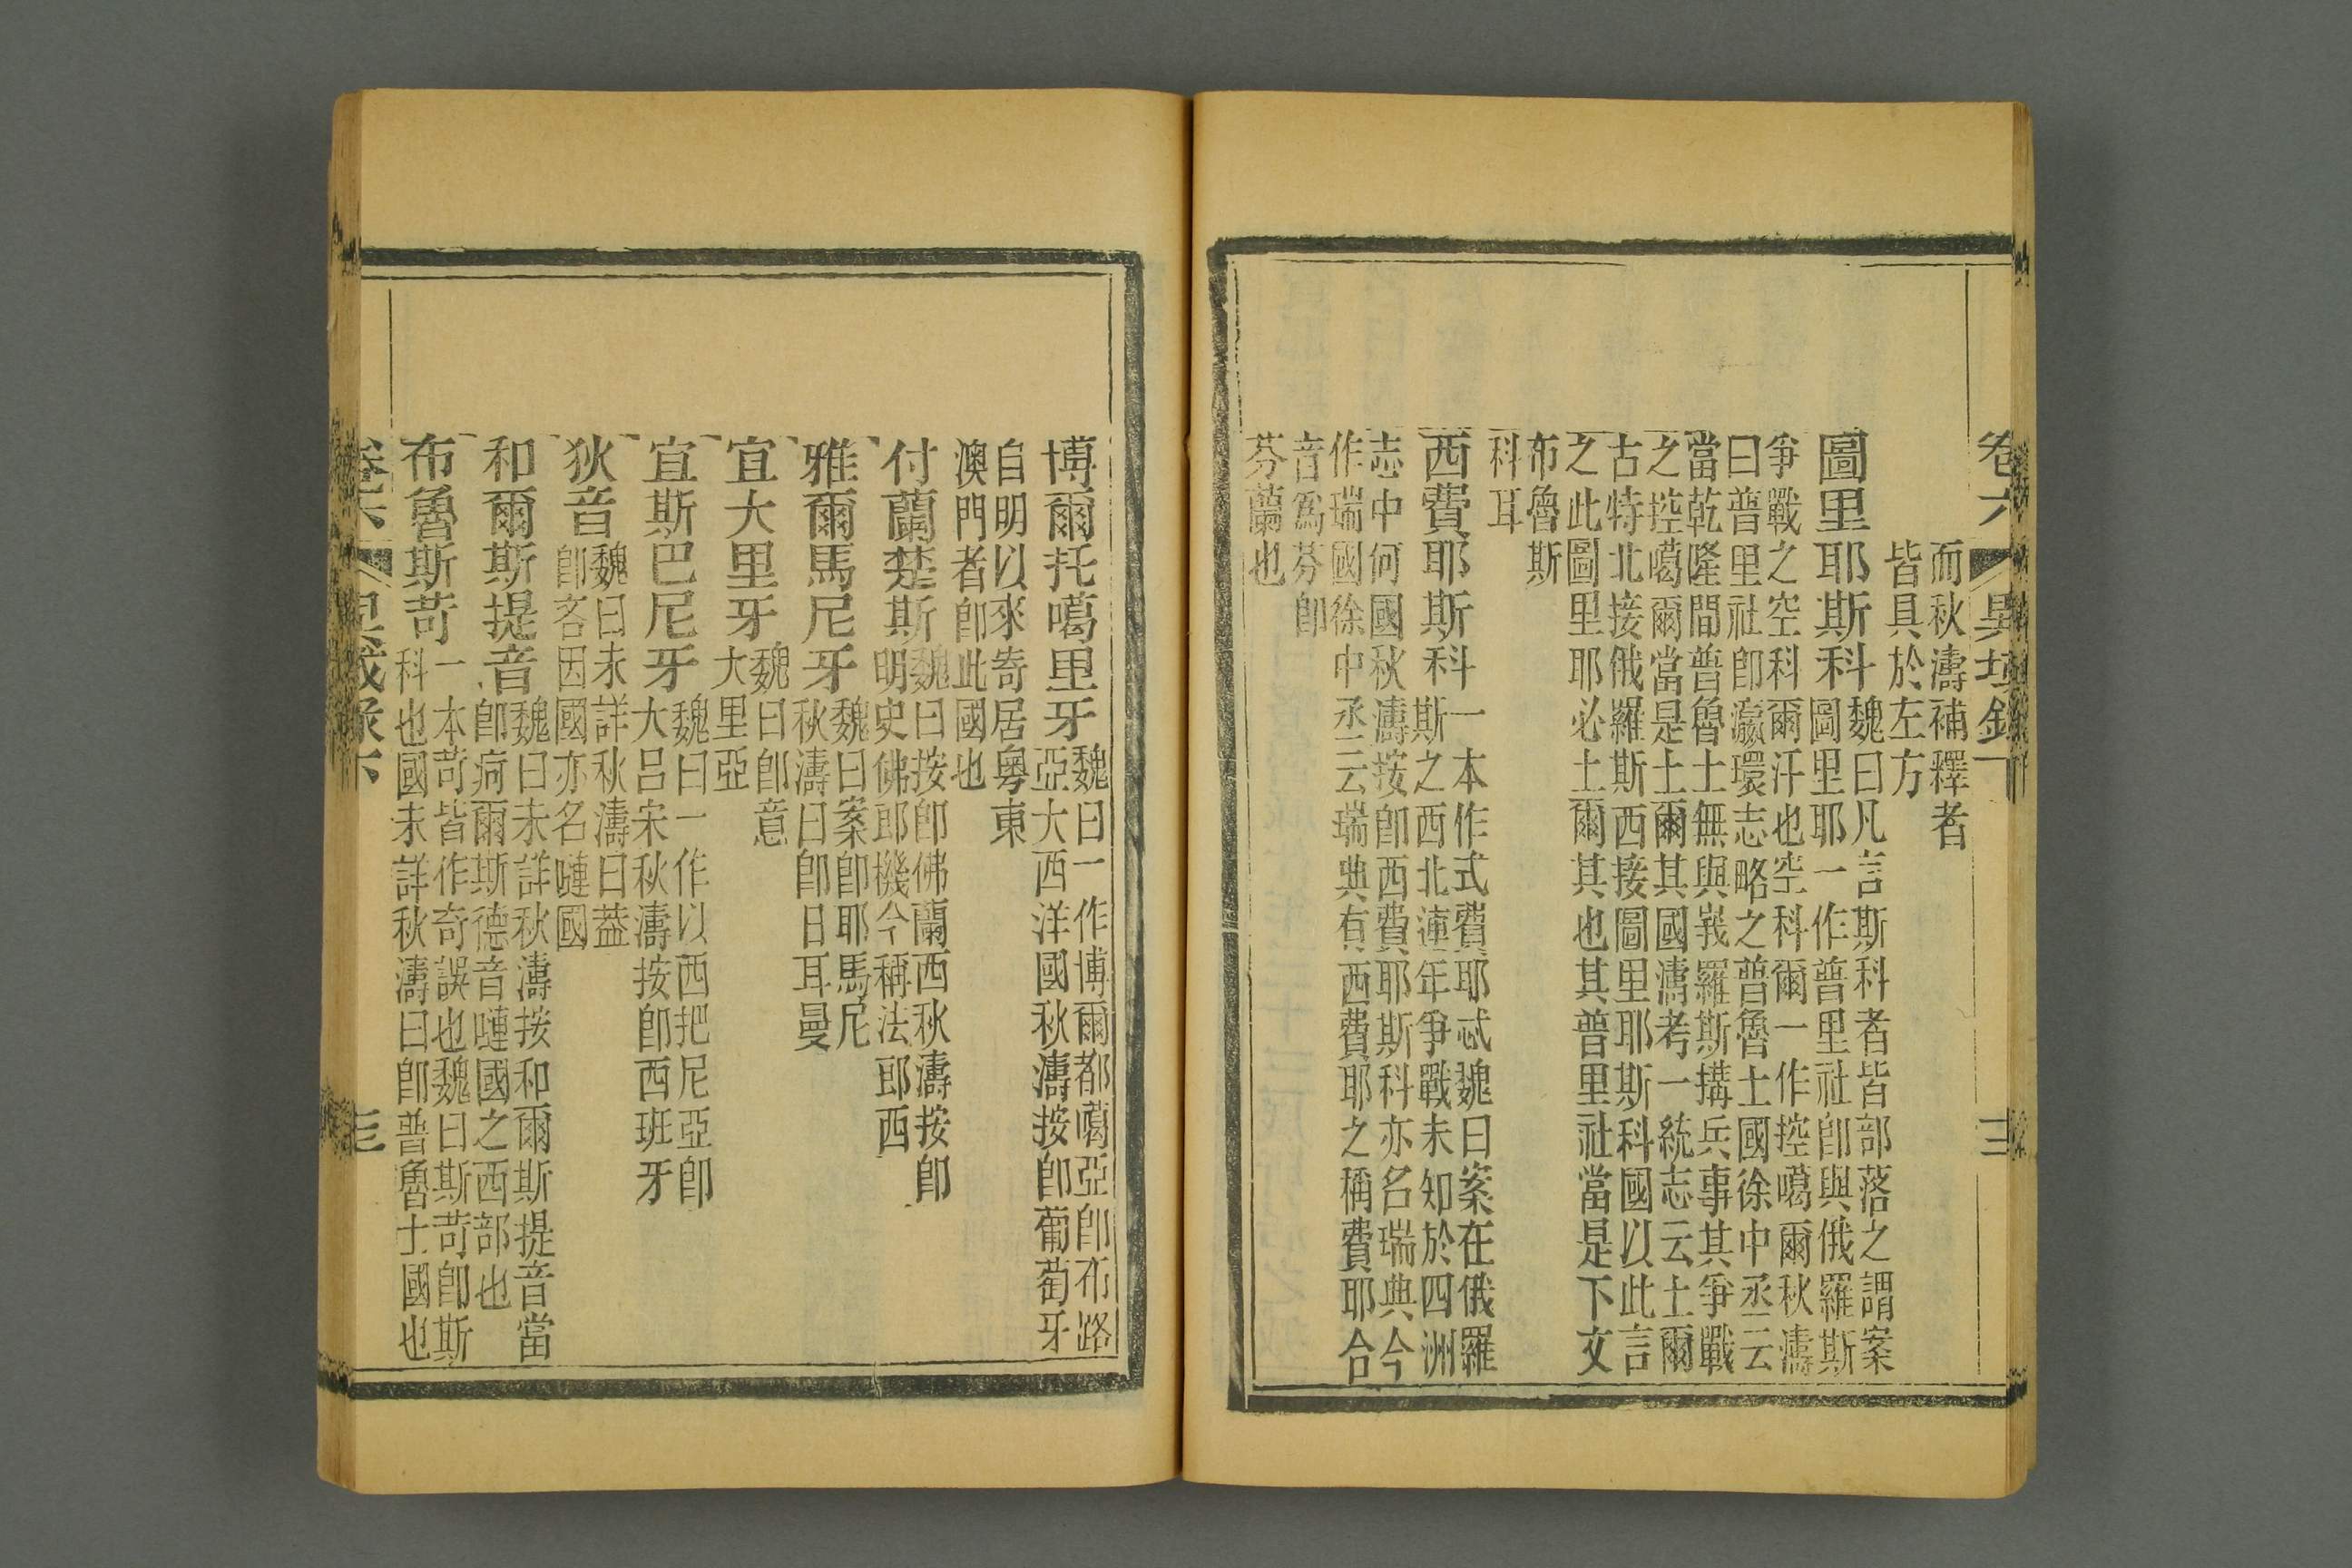 卷六
異域錄下
三
而秋濤補釋者
皆具於左方
圖里耶斯科魏曰凡言斯科者皆部落之謂案
圖里耶一作普里社卽與俄羅斯
爭戰之空科爾汗也空科爾一作控噶爾秋濤
曰普里社卽瀛環志略之普魯士國徐中丞云
當乾隆間普魯士無與峩羅斯搆兵事其爭戰
之控噶爾當是土爾其國濤考一統志云土爾
古特北接俄羅斯西接圖里耶斯科國以此言
之此圖里耶必土爾其也其普里社當是下文
布魯斯
科耳
西費耶斯科一本作式費耶忒魏曰案在俄羅
斯之西北連年爭戰未知於四洲
志中何國秋濤按卽西費耶斯科亦名瑞典今
作瑞國徐中丞云瑞典有西費耶之稱費耶合
音為芬卽
芬蘭也
博爾托噶里牙魏曰一作博爾都噶亞卽布路
亞大西洋國秋濤按卽葡萄牙
自明以來寄居粵東
澳門者卽此國也
付蘭楚斯魏曰按卽佛蘭西秋濤按卽
明史佛郎機今稱法郎西
雅爾馬尼牙魏曰案卽耶馬尼
秋濤曰卽日耳曼
宜大里牙魏曰卽意
大里亞
宜斯巴尼牙魏曰一作以西把尼亞卽
大呂宋秋濤按卽西班牙
狄音魏曰未詳秋濤曰葢
卽吝因國亦名嗹國
和爾斯提音魏曰未詳秋濤按和爾斯提音當
卽疴爾斯德音嗹國之西部也
布魯斯苛一本苛皆作奇誤也魏曰斯苛卽斯
科也國未詳秋濤曰卽普魯士國也